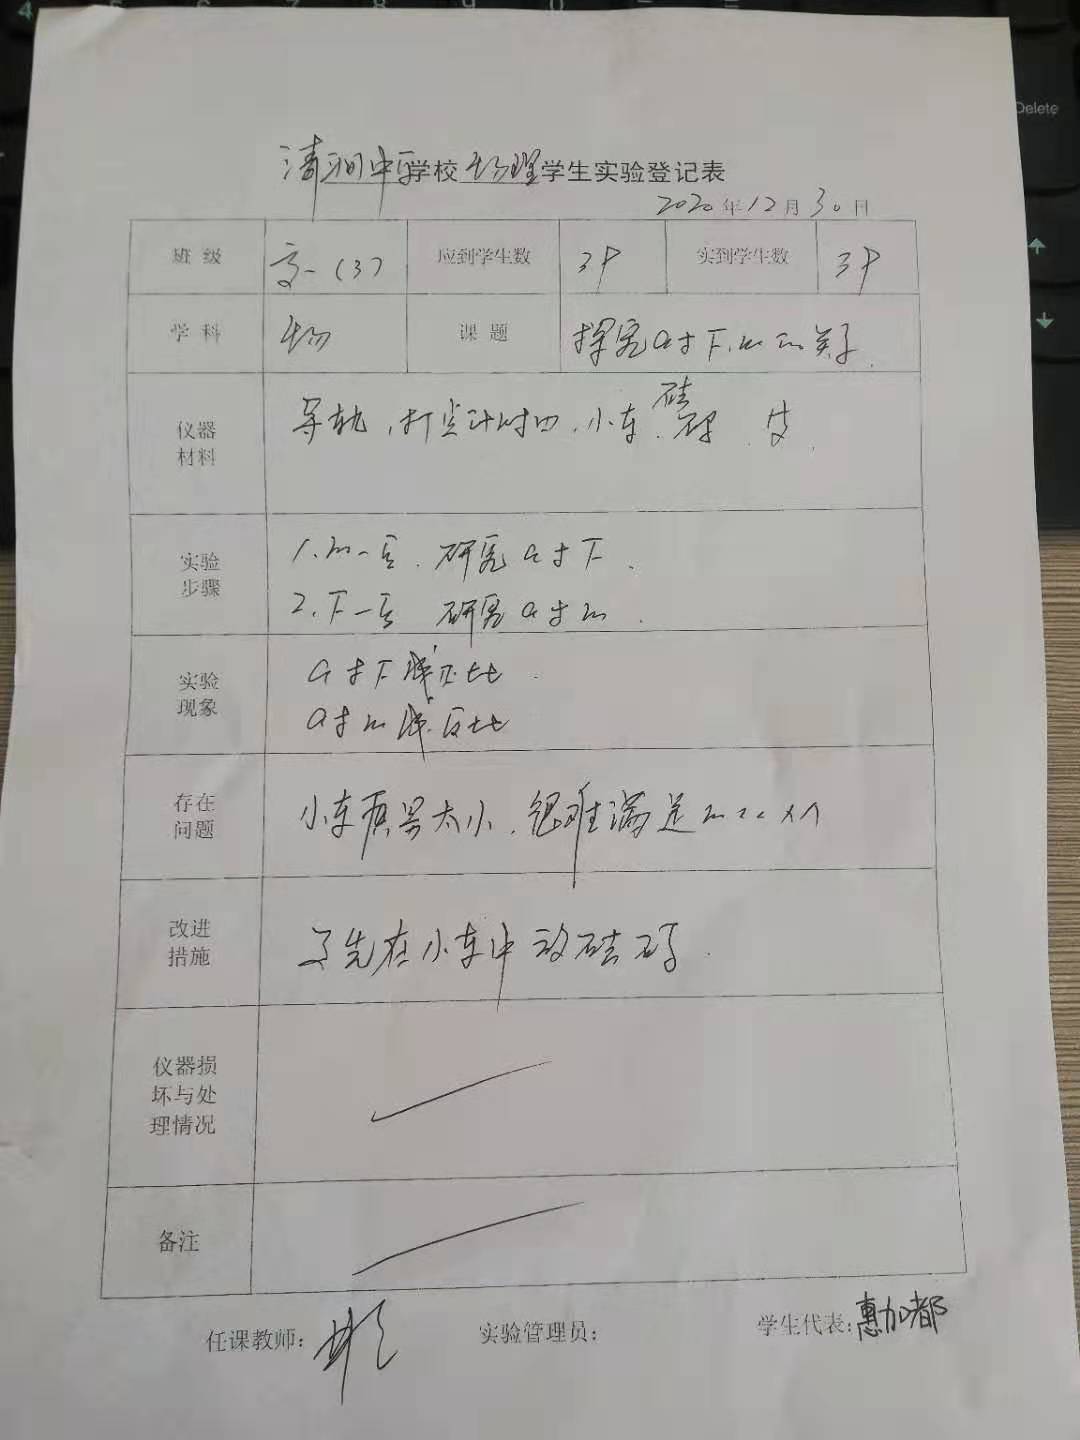 清涧中学学校 物理 学生实验登记表
2020年12月30日
班级 高一(3) 应到学生数 实到学生数
学科 物 课题 探究a与F、m的关系.
仪器材料 导轨,打点计时四,小车,砝码
实验步骤 1.m一定.研究a与F.
2.F一定 研究a与m.
实验现象 a与F成正比.
a与m成反比
存在问题 小车质量太小,很难满足m<<M
改进措施 先在小车中放砝码.
仪器损坏与处理情况
备注
任课教师: 实验管理员: 学生代表:惠加都
Delete